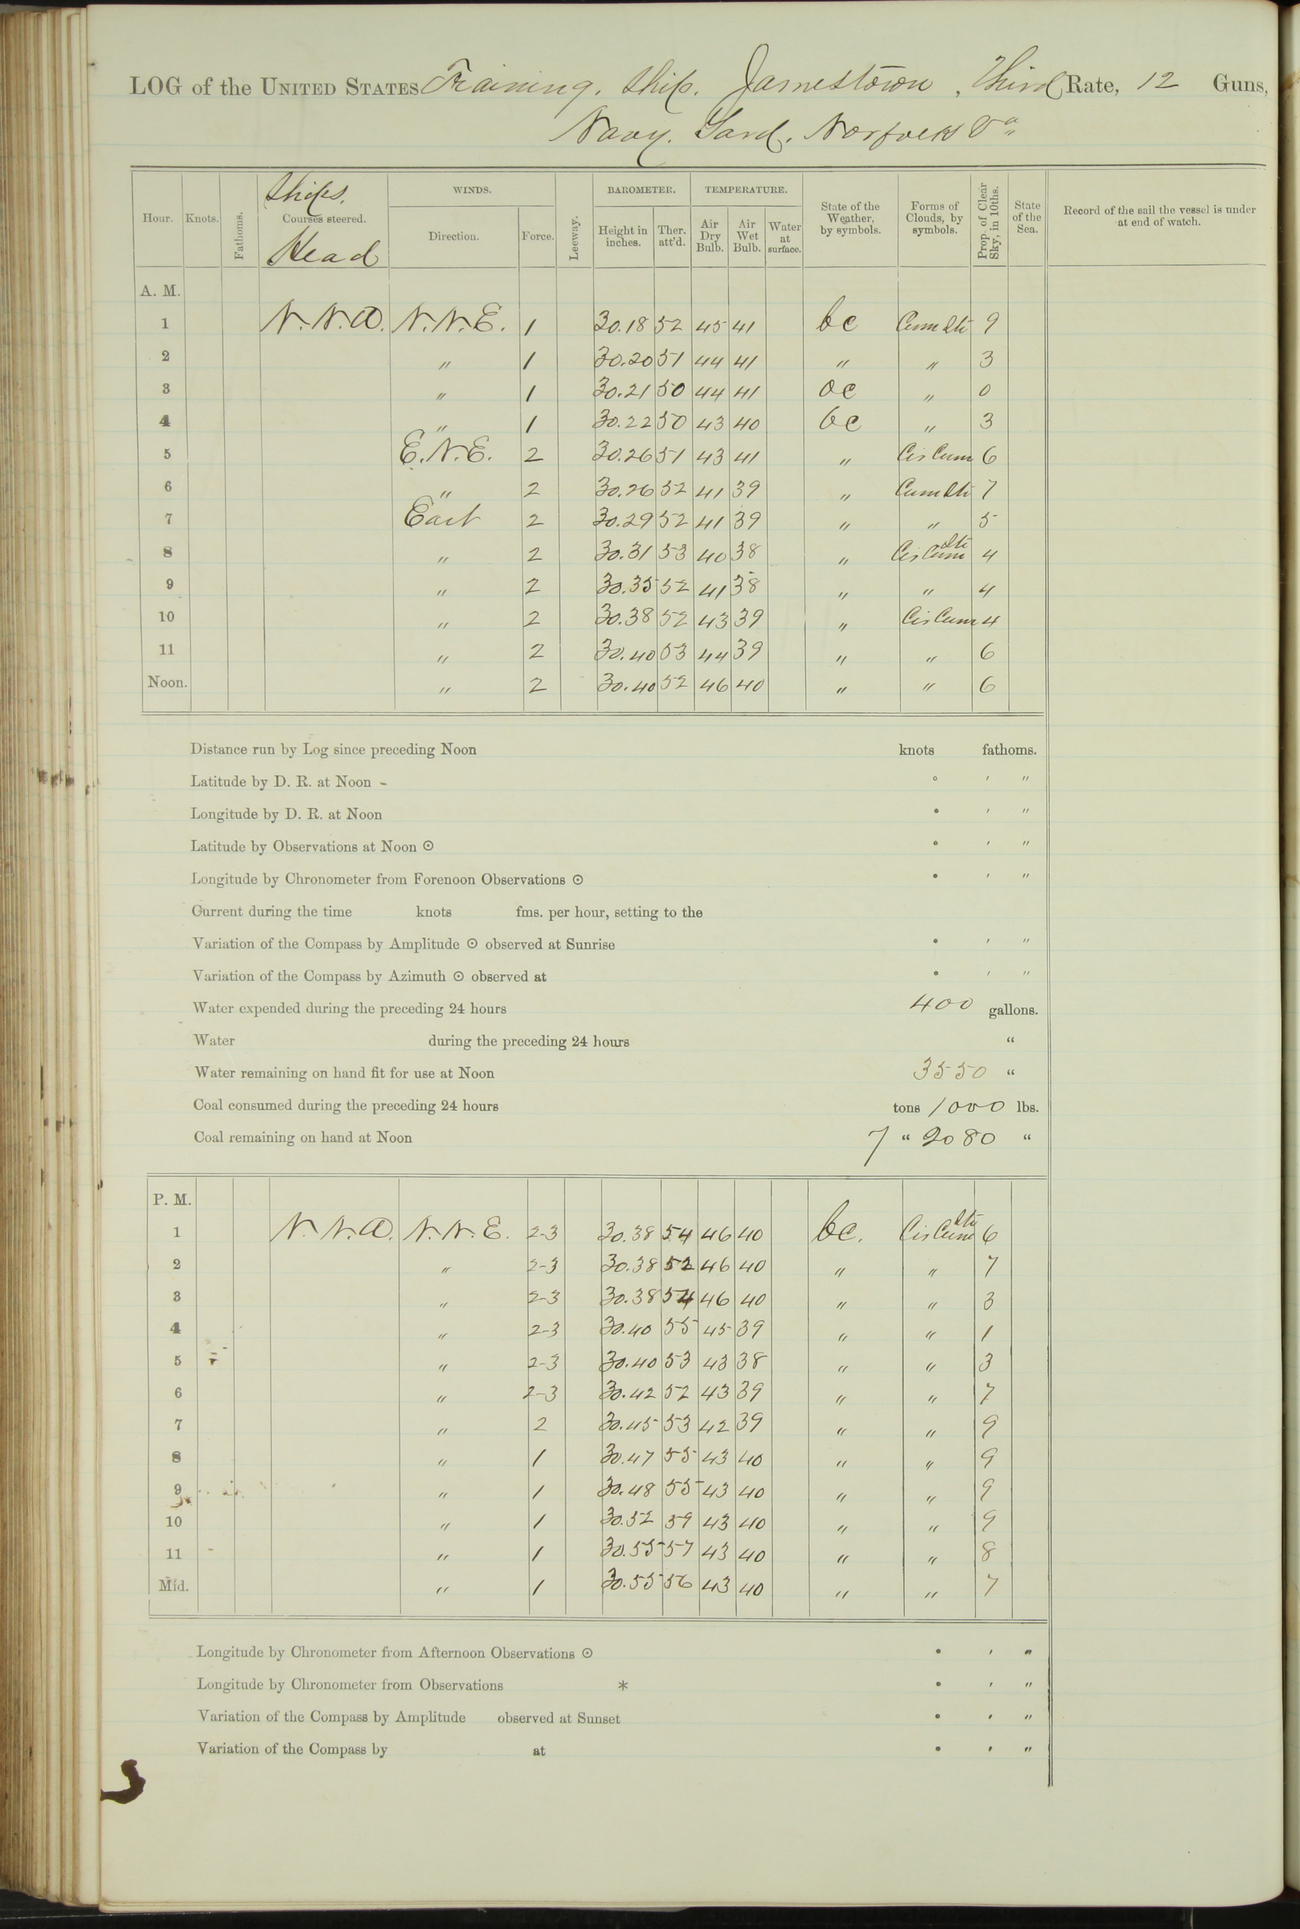 LOG of the UNITED STATES Training Ship. Jamestown, Third Rate, 12 Guns,
Navy. Yard. Norfolk Va
Hour. Knots. Fathoms. Ships. Courses steered. Head WINDS. Direction. Force. Leeway. BAROMETER. Height in inches. Ther. att'd. TEMPERATURE. Air Dry Bulb. Air Wet Bulb. Water at surface. State of the Weather, by symbols. Forms of Clouds, by symbols. Prop. of Clear Sky, in 10ths. State of the Sea. Record of the sail the vessel is under at end of watch.
A. M.
1 N.N.W. N.N.E. 1 30.18 52 45 41 bc Cum Sti 9
2 " 1 30.20 51 44 41 " " 3
3 " 1 30.21 50 44 41 oc " 0
4 " 1 30.22 50 43 40 bc " 3
5 E.N.E. 2 30.26 51 43 41 " Cis Cum 6
6 " 2 30.26 52 41 39 " Cum Sti 7
7 East 2 30.29 52 41 39 " " 5
8 " 2 30.31 53 40 38 " Cis Cum Sti 4
9 " 2 30.35 52 41 38 " " 4
10 " 2 30.38 52 43 39 " Cis Cum 4
11 " 2 30.40 53 44 39 " " 6
Noon. " 2 30.40 52 46 40 " " 6
Distance run by Log since preceding Noon knots fathoms.
Latitude by D. R. at Noon - ° ' "
Longitude by D. R. at Noon ° ' "
Latitude by Observations at Noon ⊙ ° ' "
Longitude by Chronometer from Forenoon Observations ⊙ ° ' "
Current during the time knots fms. per hour, setting to the
Variation of the Compass by Amplitude ⊙ observed at Sunrise ° ' "
Variation of the Compass by Azimuth ⊙ observed at ° ' "
Water expended during the preceding 24 hours 400 gallons.
Water during the preceding 24 hours "
Water remaining on hand fit for use at Noon 3550 "
Coal consumed during the preceding 24 hours tons 1000 lbs.
Coal remaining on hand at Noon 7 " 2080 "
P. M.
1 N.N.W. N.N.E. 2-3 30.38 54 46 40 bc. Cis Cum Sti 6
2 " 2-3 30.38 52 46 40 " " 7
3 " 2-3 30.38 54 46 40 " " 3
4 " 2-3 30.40 55 45 39 " " 1
5 " 2-3 30.40 53 43 38 " " 3
6 " 2-3 30.42 52 43 39 " " 7
7 " 2 30.45 53 42 39 " " 9
8 " 1 30.47 55 43 40 " " 9
9 " 1 30.48 55 43 40 " " 9
10 " 1 30.52 59 43 40 " " 9
11 " 1 30.55 57 43 40 " " 8
Mid. " 1 30.55 56 43 40 " " 7
Longitude by Chronometer from Afternoon Observations ⊙ ° ' "
Longitude by Chronometer from Observations * ° ' "
Variation of the Compass by Amplitude observed at Sunset ° ' "
Variation of the Compass by at ° ' "